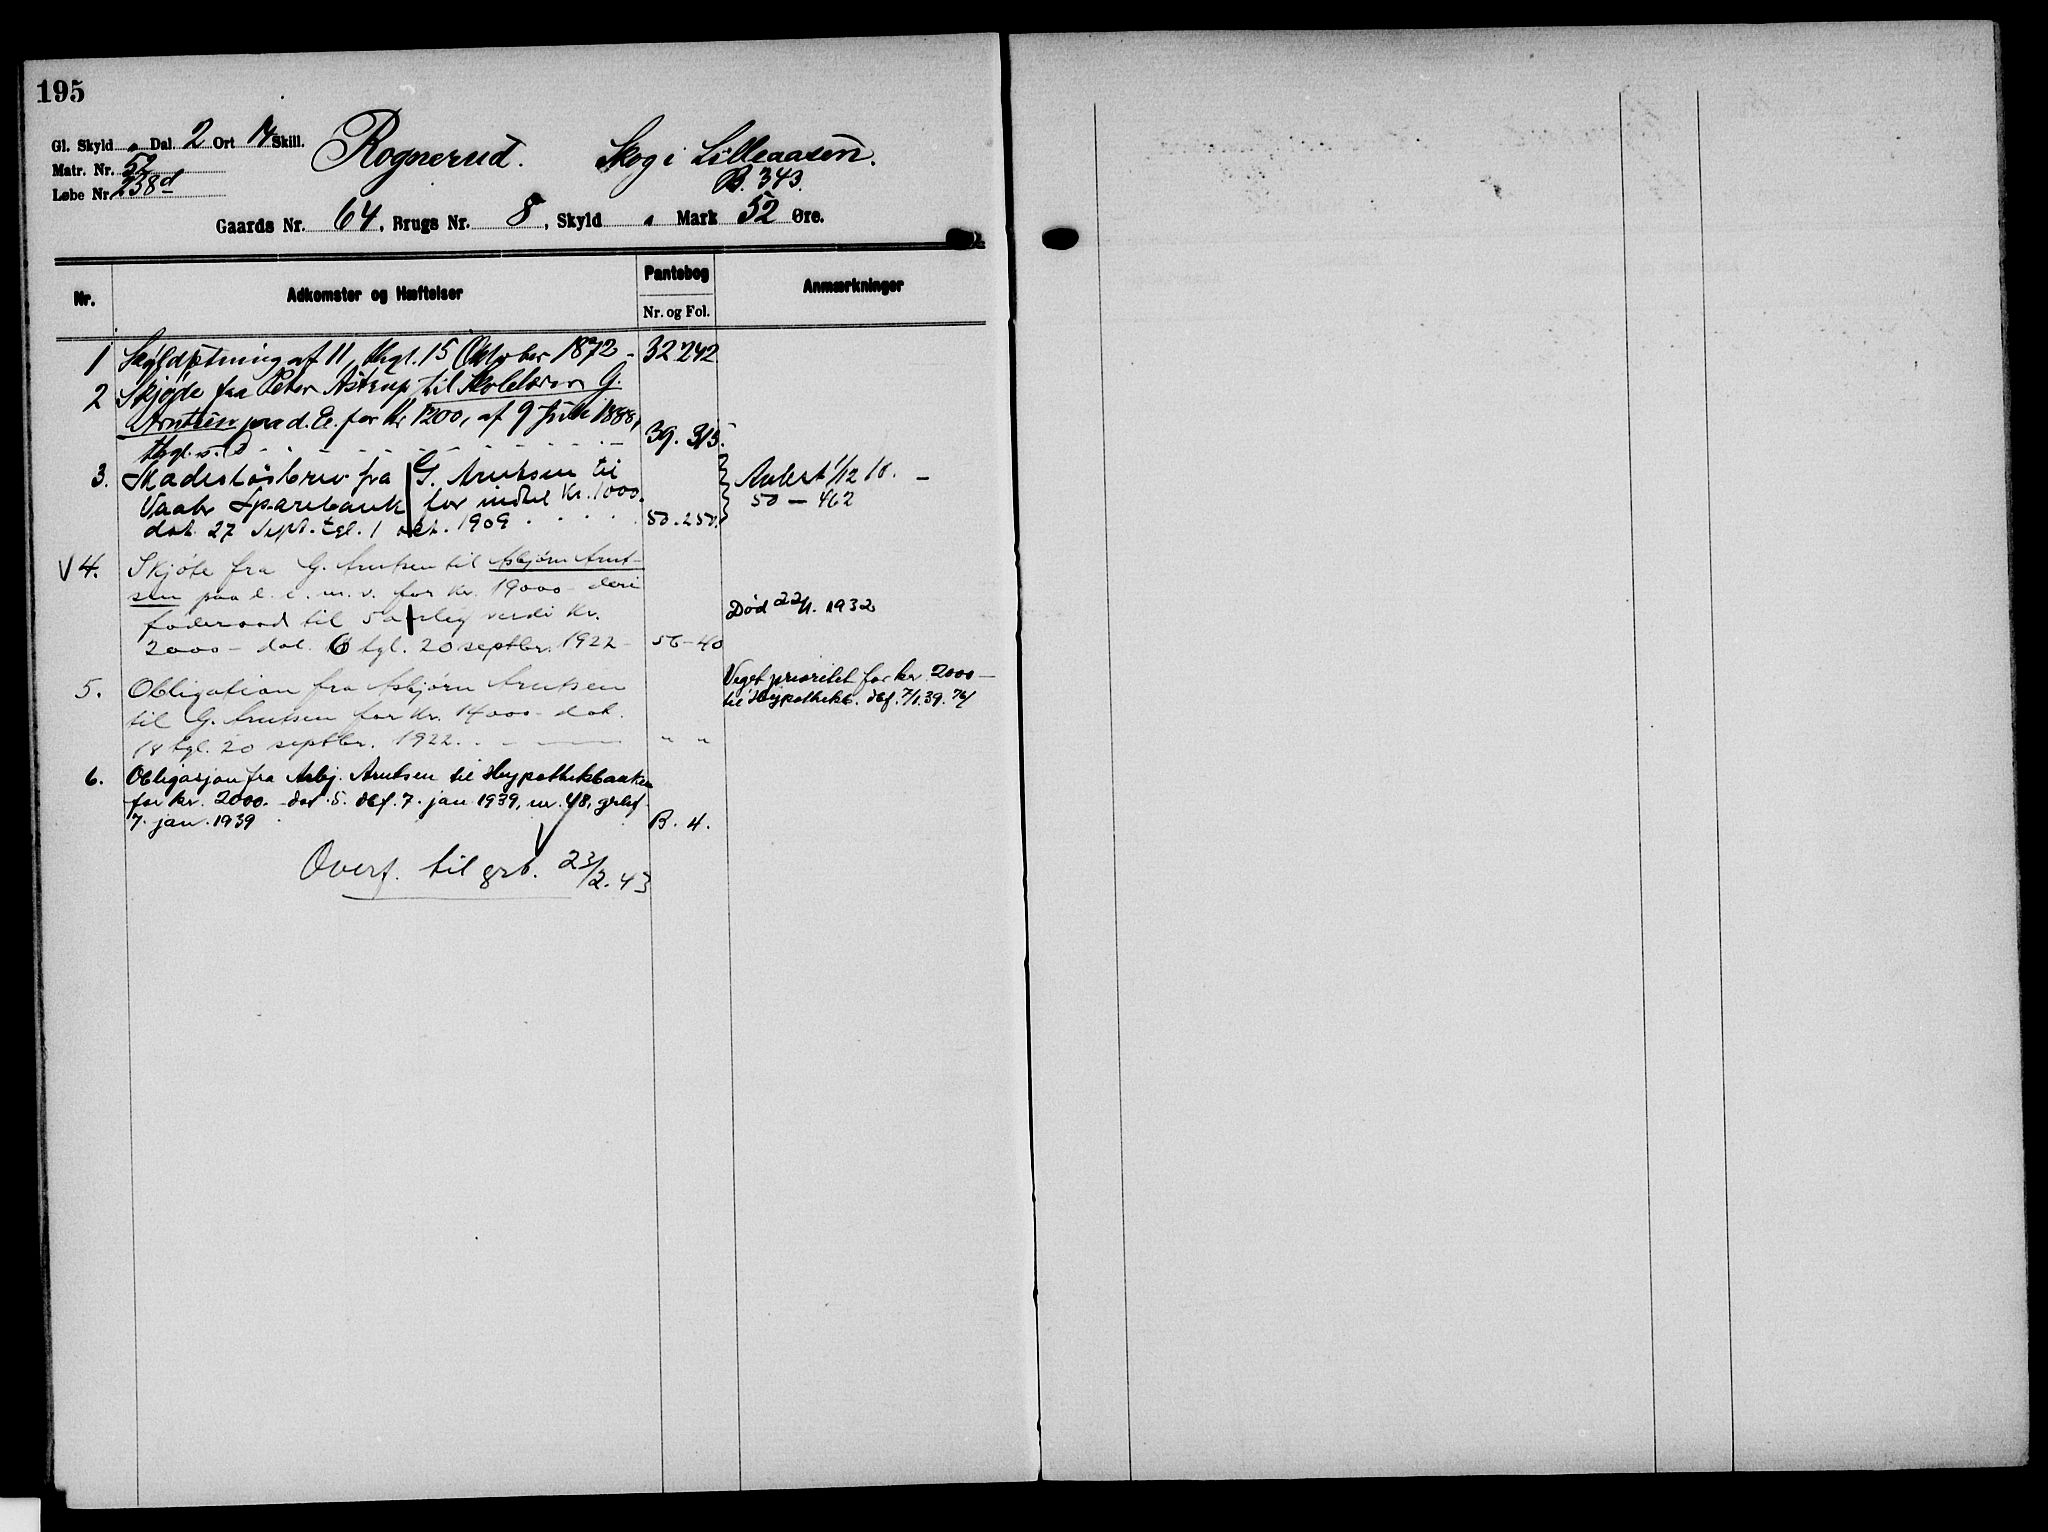 195
Gl. Skyld „ Dal. 2 Ort 14 Skill.
Matr. Nr. 52
Løbe Nr. 238d
Rognerud. Skog i Lilleaasen.
B. 343.
Gaards Nr. 64, Brugs Nr. 8, Skyld „ Mark 52 Øre.
Nr. Adkomster og Hæftelser Pantebog Anmærkninger
Nr. og Fol.
1 Skyldsetning af 11, thgl. 15 Oktober 1872 - 32 242
2 Skjøde fra Peter Astrup til Skolelærer G.
Arntsen paa d. E. for Kr 1200, af 9 Juli 1888,
thgl. s. D 39. 315.
3. Skadesløsbrev fra G. Arntsen til
Vaaler Sparebank for indtil Kr. 1000.
dat. 27 Sept. tgl. 1 okt. 1909 50. 250.
Avlest 1/12 10. -
50 - 462
V 4. Skjøte fra G. Arntsen til Asbjørn Arnt-
sen paa d. e. m. v. for kr. 19000 - deri
foderaad til 5 aarlig verdi kr.
2000 - dat. 16 tgl. 20 septbr. 1922 - 56 - 40
Død 22/11. 1932
5. Obligation fra Asbjørn Arntsen
til G. Arntsen for kr. 14000 - dat.
18 tgl. 20 septbr. 1922. " "
Veget prioritet for kr. 2000 -
til Hypothekb. dbf. 7/1.39. 76/
6. Obligasjon fra Asbj. Arntsen til Hypothekbanken
for kr. 2000. - dat. 5. dbf. 7. jan 1939, nr. 48, grbf.
7. jan. 1939 B. 4.
Overf. til grb. 23/2. 43